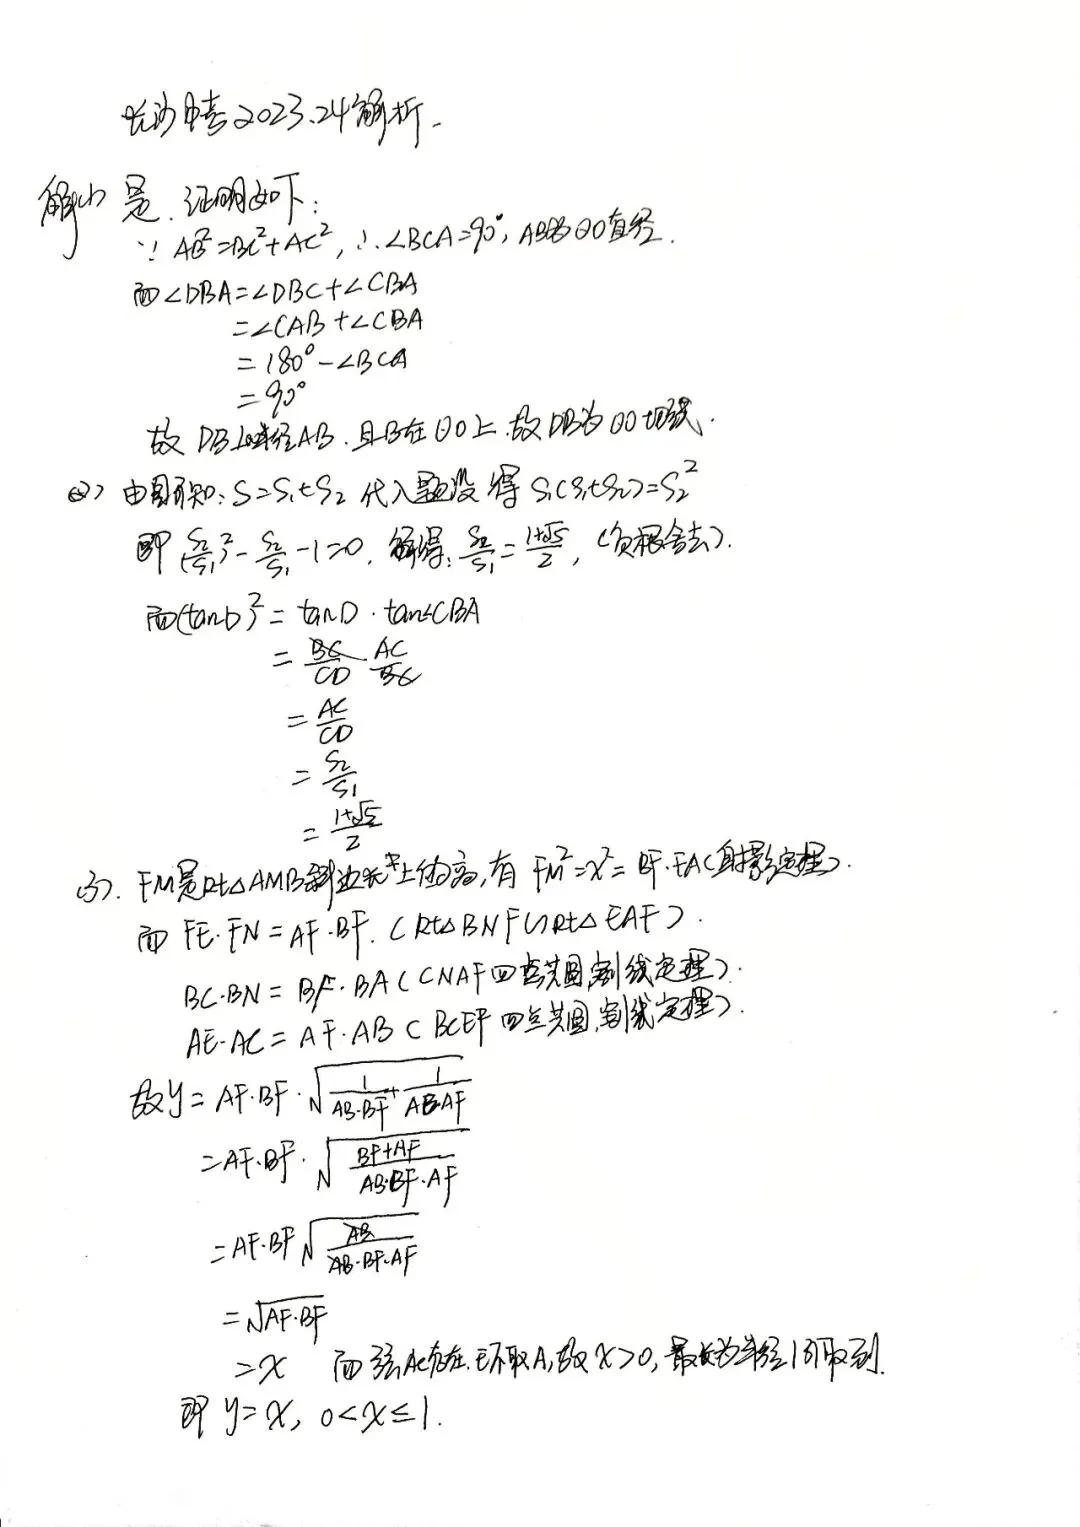 长沙中考2023.24解析.
解(1) 是.证明如下:
∵ AB²=BC²+AC², ∴∠BCA=90°, AB为⊙O直径.
而∠DBA=∠DBC+∠CBA
=∠CAB+∠CBA
=180°-∠BCA
=90°
故 DB⊥半径AB.且B在⊙O上.故DB为⊙O切线.
(2) 由图可知:S=S₁+S₂ 代入题设得 S₁(S₁+S₂)=S₂²
即 (S₂/S₁)²-S₂/S₁-1=0, 解得: S₂/S₁=(1+√5)/2, (负根舍去).
而(tanD)²=tanD·tan∠CBA
=BC/CD·AC/BC
=AC/CD
=S₂/S₁
=(1+√5)/2
(3). FM是Rt△AMB斜边长上的高,有 FM²=x²=BF·FA(射影定理).
而 FE·FN=AF·BF. (Rt△BNF∽Rt△EAF).
BC·BN=BF·BA(CNAF四点共圆,割线定理).
AE·AC=AF·AB(BCEF四点共圆,割线定理).
故y=AF·BF·√(1/(AB·BF)+1/(AB·AF))
=AF·BF·√((BF+AF)/(AB·BF·AF))
=AF·BF√(AB/(AB·BF·AF))
=√(AF·BF)
=x 而弦AC存在.E不取A,故x>0,最长为半径1可取到.
即 y=x, 0<x≤1.